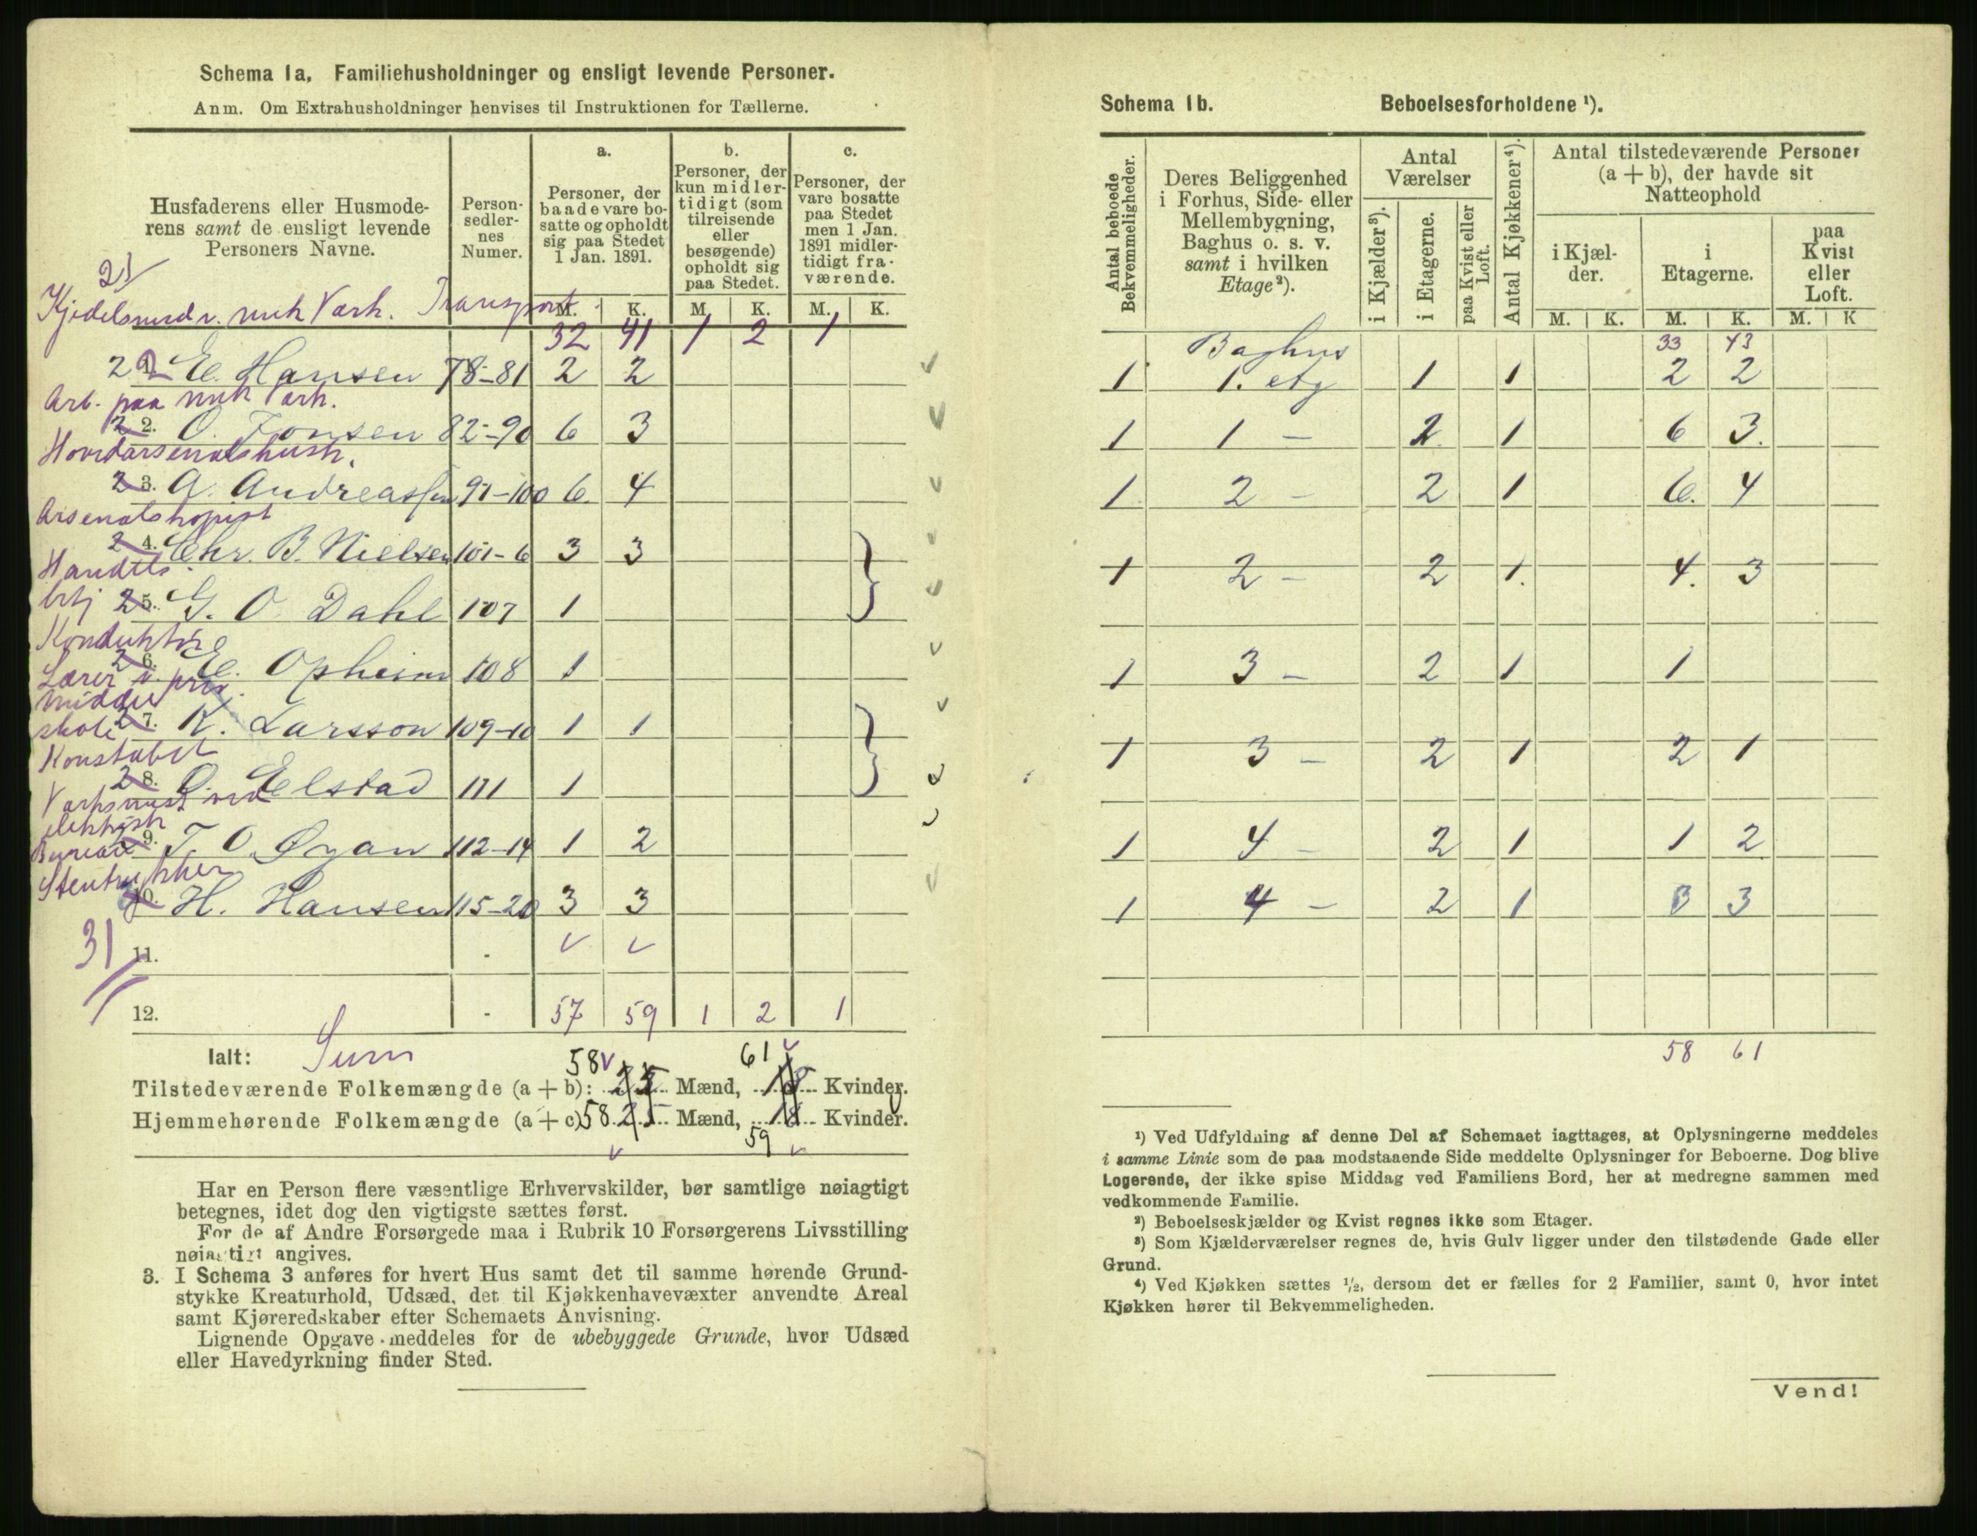 Schema 1a. Familiehusholdninger og ensligt levende Personer.
Anm. Om Extrahusholdninger henvises til Instruktionen for Tællerne.
Husfaderens eller Husmode-
rens samt de ensligt levende
Personers Navne.
Person-
sedler-
nes
Numer.
a.
Personer, der
baade vare bo-
satte og opholdt
sig paa Stedet
1 Jan. 1891.
b.
Personer, der
kun midler-
tidigt (som
tilreisende
eller
besøgende)
opholdt sig
paa Stedet.
c.
Personer, der
vare bosatte
paa Stedet
men 1 Jan.
1891 midler-
tidigt fra-
værende.
M. K. M. K. M. K.
21
Kjedelsmed v. mek Værk. Transport
32 41 1 2 1
22 1. E. Hansen 78-81 2 2
Arb. paa mek Værk.
2 2. O. Jonsen 82-90 6 3
Hovedarsenalshusk.
2 3. A. Andreassen 91-100 6 4
Arsenalskopist
2 4. Chr. B. Nielsen 101-6 3 3
Handels
btj 2 5. G. O. Dahl 107 1
Konduktør
2 6. E. Opheim 108 1
Lærer v. priv.
middel
skole 2 7. K. Larsson 109-10 1 1
Konstabel
2 8. O. Elstad 111 1
Værksmest ved
elektrisk
Bureau 2 9. T. O. Øyan 112-14 1 2
Stentrykker
3 10. H. Hansen 115-20 3 3
31 11.
12. 57 59 1 2 1
Ialt: Sum
58 61
Tilstedeværende Folkemængde (a + b): 25 Mænd, 18 Kvinder.
Hjemmehørende Folkemængde (a + c) 58 25 Mænd, 18 Kvinder.
59
Har en Person flere væsentlige Erhvervskilder, bør samtlige nøiagtigt
betegnes, idet dog den vigtigste sættes først.
For de af Andre Forsørgede maa i Rubrik 10 Forsørgerens Livsstilling
nøiagtigt angives.
3. I Schema 3 anføres for hvert Hus samt det til samme hørende Grund-
stykke Kreaturhold, Udsæd, det til Kjøkkenhavevæxter anvendte Areal
samt Kjøreredskaber efter Schemaets Anvisning.
Lignende Opgave meddeles for de ubebyggede Grunde, hvor Udsæd
eller Havedyrkning finder Sted.
Schema 1b. Beboelsesforholdene ¹).
Antal beboede
Bekvemmeligheder.
Deres Beliggenhed
i Forhus, Side- eller
Mellembygning,
Baghus o. s. v.
samt i hvilken
Etage²).
Antal
Værelser
i Kjælder³).
i Etagerne.
paa Kvist eller
Loft.
Antal Kjøkkener⁴).
Antal tilstedeværende Personer
(a + b), der havde sit
Natteophold
i Kjæl-
der.
i
Etagerne.
paa
Kvist
eller
Loft.
M. K. M. K. M. K
33 43
Baghus
1 1. etg 1 1 2 2
1 1 – 2 1 6 3.
1 2 – 2 1 6. 4
1 2 – 2 1. 4. 3
1 3 – 2 1 1
1 3 – 2 1 2 1
1 4 – 2 1 1 2
1 4 – 2 1 3 3
58 61
¹) Ved Udfyldning af denne Del af Schemaet iagttages, at Oplysningerne meddeles
i samme Linie som de paa modstaaende Side meddelte Oplysninger for Beboerne. Dog blive
Logerende, der ikke spise Middag ved Familiens Bord, her at medregne sammen med
vedkommende Familie.
²) Beboelseskjælder og Kvist regnes ikke som Etager.
³) Som Kjælderværelser regnes de, hvis Gulv ligger under den tilstødende Gade eller
Grund.
⁴) Ved Kjøkken sættes ½, dersom det er fælles for 2 Familier, samt 0, hvor intet
Kjøkken hører til Bekvemmeligheden.
Vend!